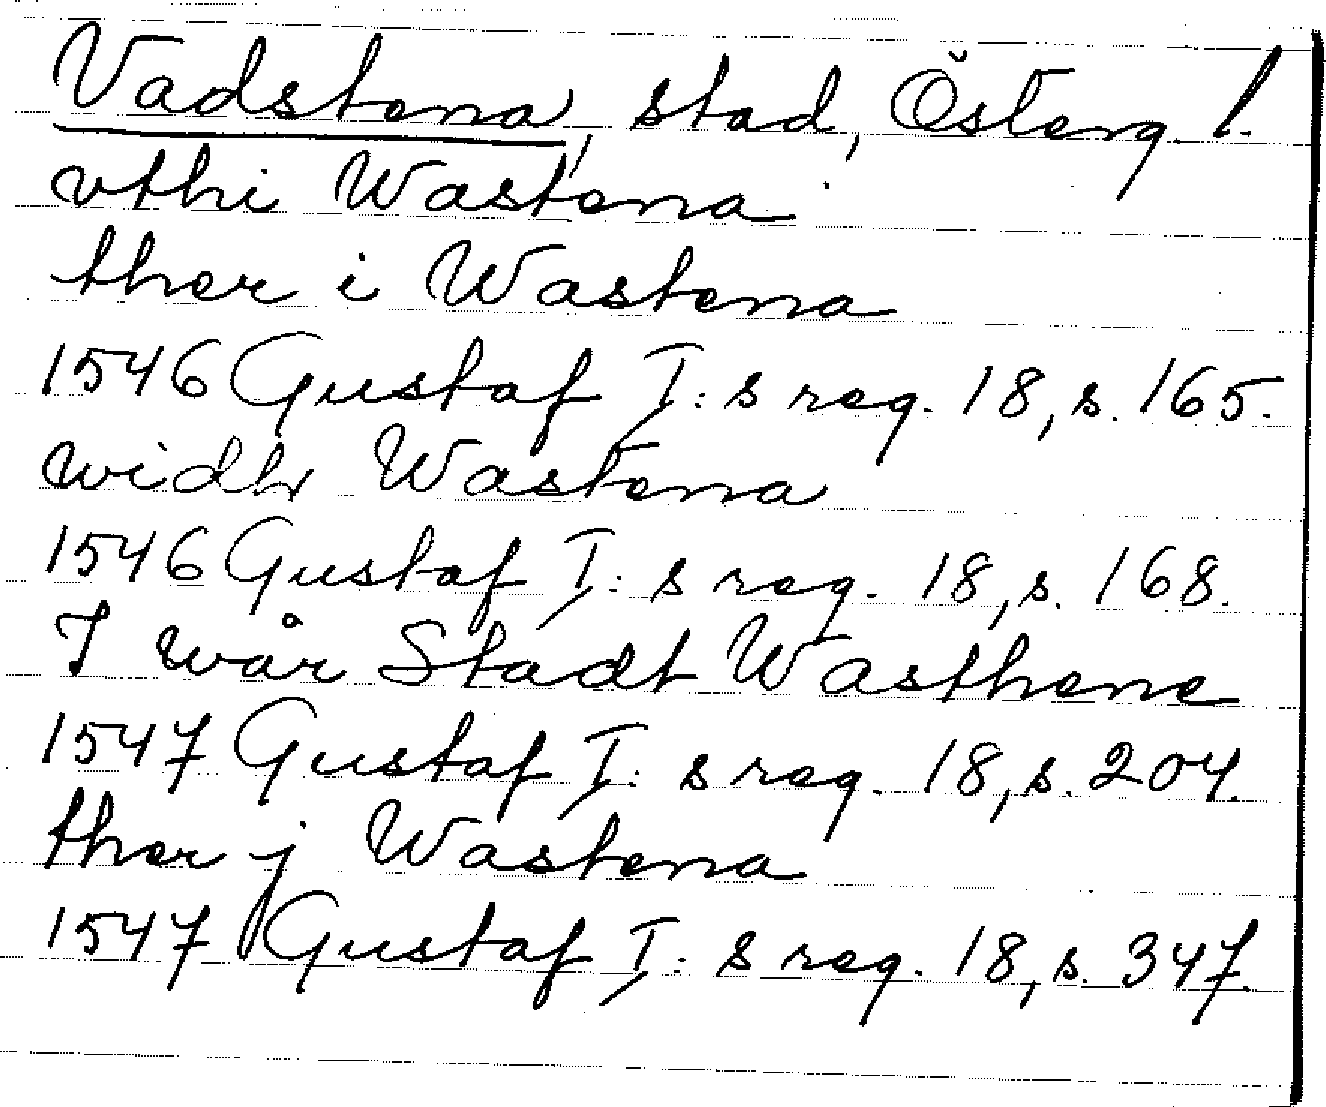 Vadstena, stad, Österg. l.
vthi Wastena
ther i Wastena
1546 Gustaf I:s reg. 18, s. 165.
widh Wastena
1546 Gustaf I:s reg. 18, s. 168.
I wår Stadt Wasthene
1547 Gustaf I:s reg. 18, s. 204.
ther j Wastena
1547 Gustaf I:s reg. 18, s. 347.